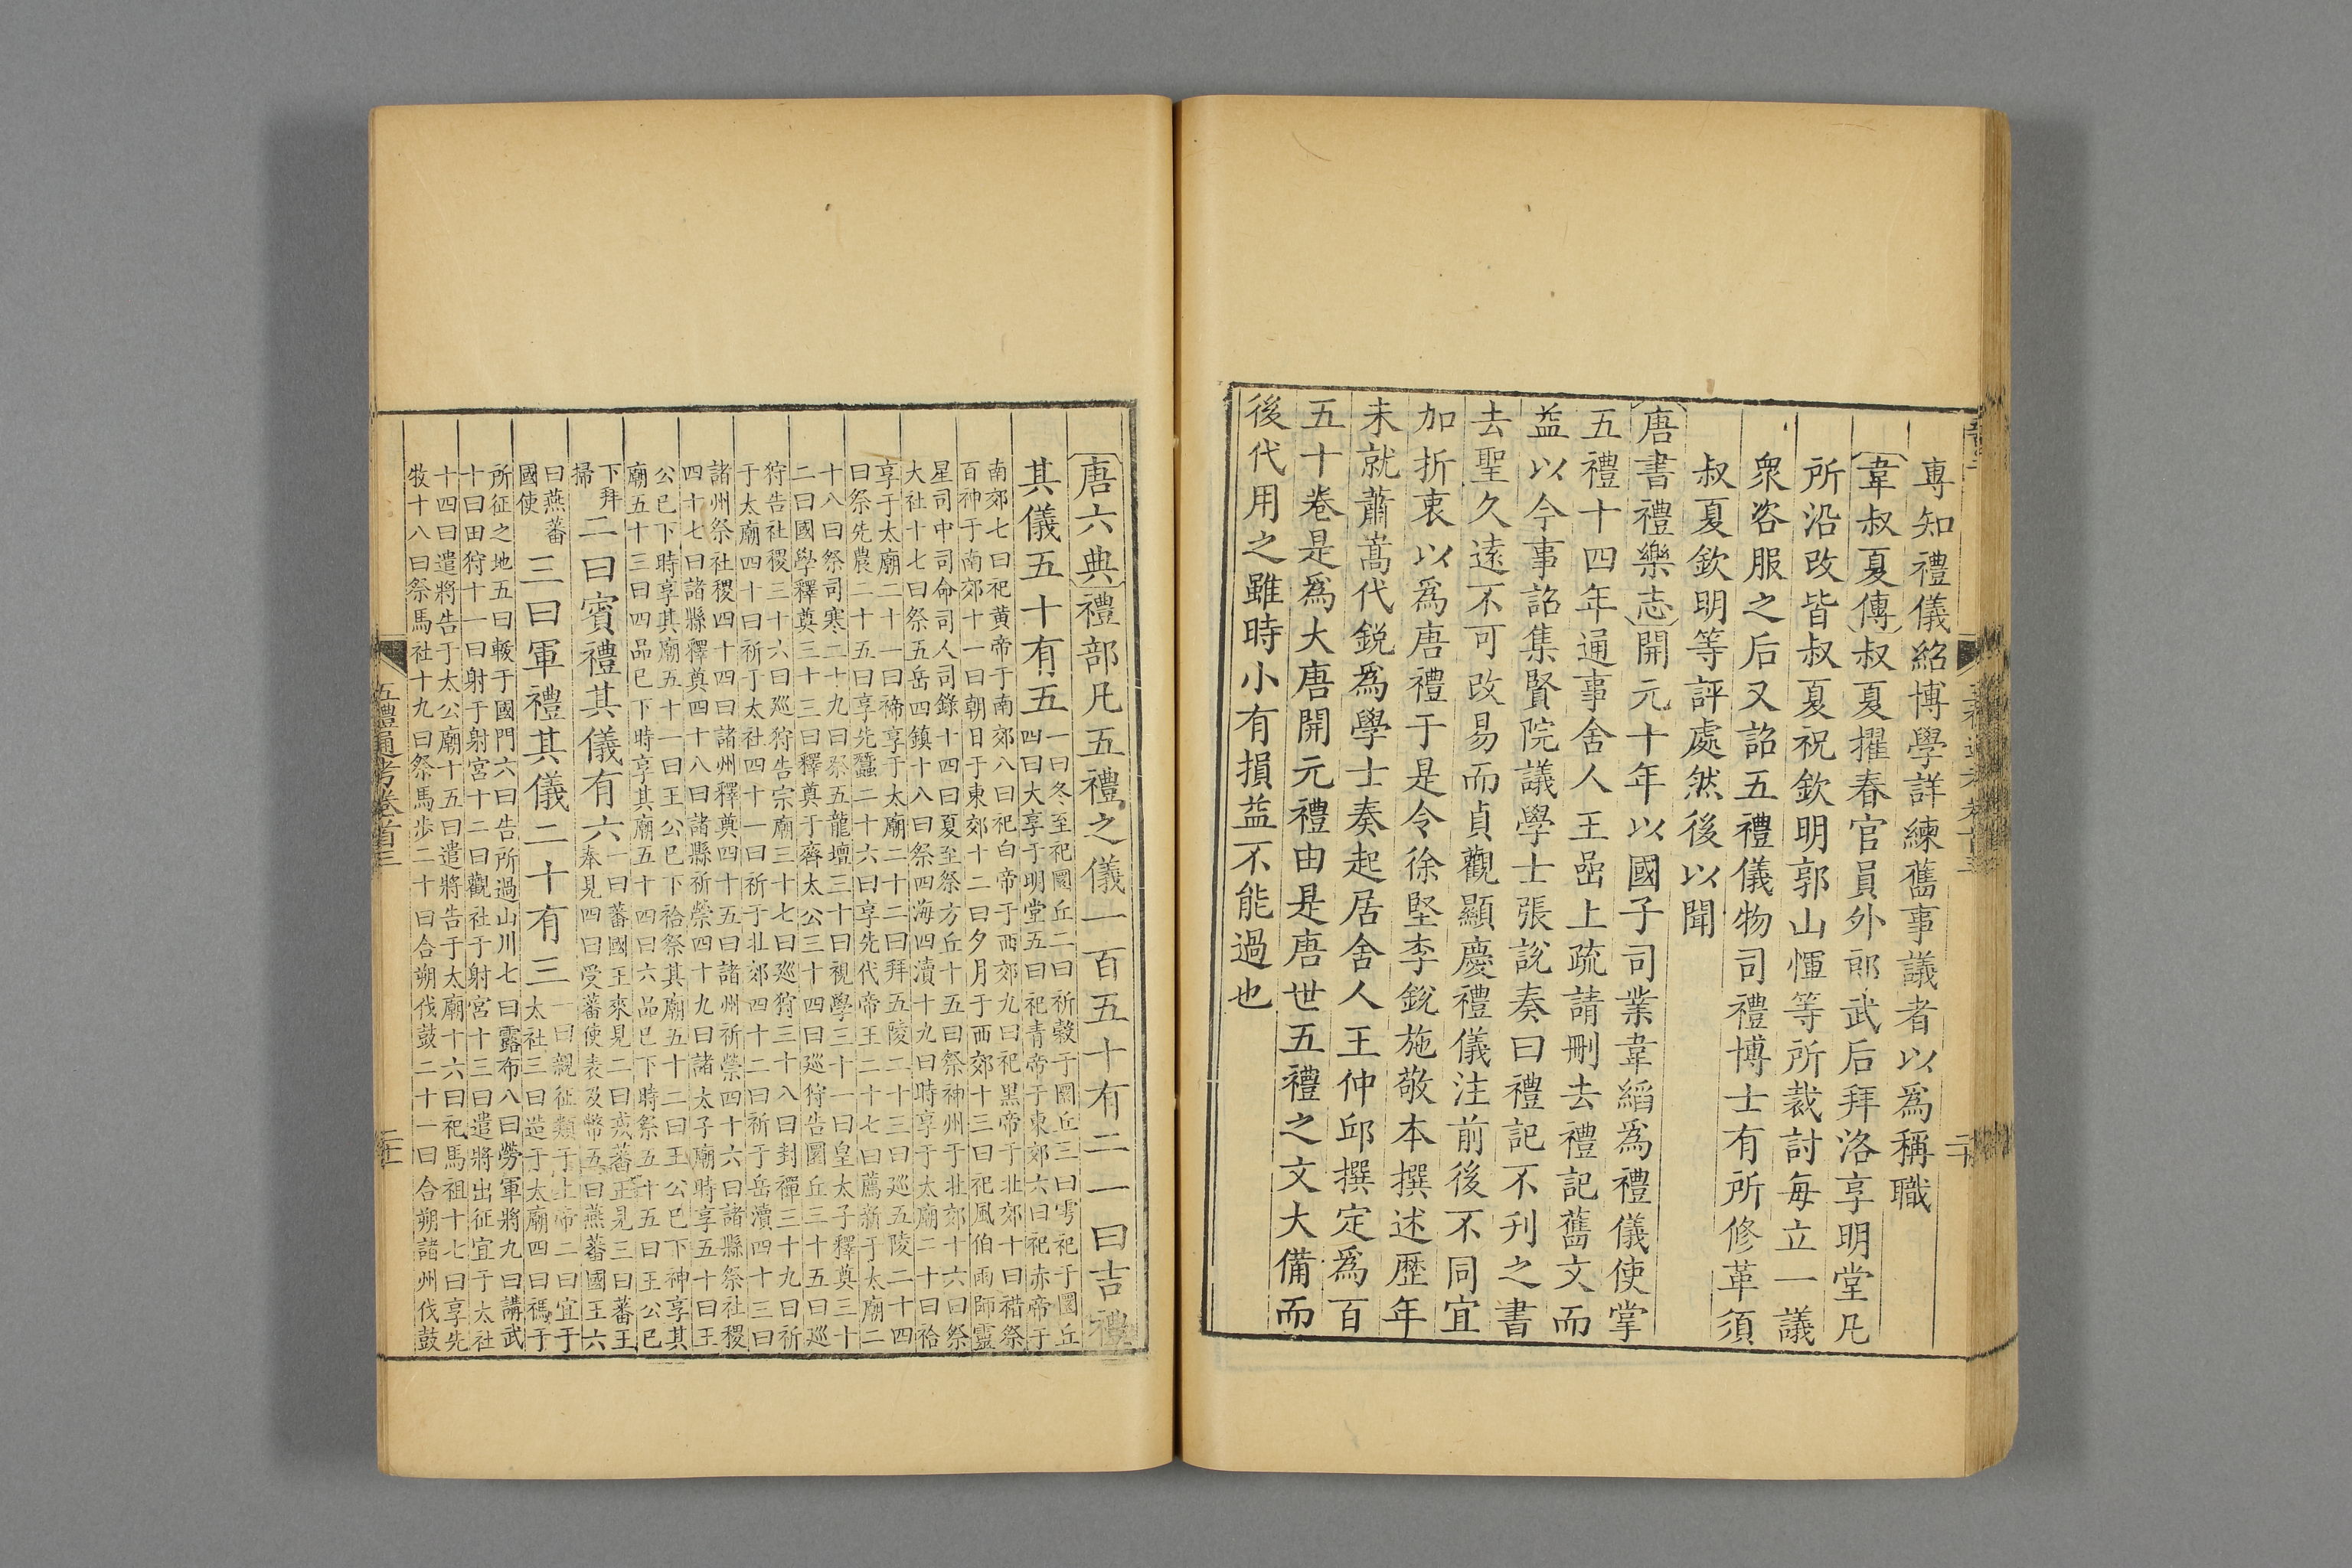 專知禮儀紹博學詳練舊事議者以爲稱職
韋叔夏傳叔夏擢春官員外郎武后拜洛享明堂凡
所沿改皆叔夏祝欽明郭山惲等所裁討每立一議
衆咨服之后又詔五禮儀物司禮博士有所修革須
叔夏欽明等評處然後以聞
唐書禮樂志開元十年以國子司業韋縚爲禮儀使掌
五禮十四年通事舍人王嵒上疏請刪去禮記舊文而
益以今事詔集賢院議學士張說奏曰禮記不刊之書
去聖久遠不可改易而貞觀顯慶禮儀注前後不同宜
加折衷以爲唐禮于是令徐堅李銳施敬本撰述歷年
未就蕭嵩代銳爲學士奏起居舍人王仲邱撰定爲百
五十卷是爲大唐開元禮由是唐世五禮之文大備而
後代用之雖時小有損益不能過也
二十
唐六典禮部凡五禮之儀一百五十有二一曰吉禮
其儀五十有五一曰冬至祀圜丘二曰祈穀于圜丘三曰雩祀于圜丘
四曰大享于明堂五曰祀青帝于東郊六曰祀赤帝于
南郊七曰祀黃帝于南郊八曰祀白帝于西郊九曰祀黑帝于北郊十曰禮祭
百神于南郊十一曰朝日于東郊十二曰夕月于西郊十三曰祀風伯雨師靈
星司中司命司人司錄十四曰夏至祭方丘十五曰祭神州于北郊十六曰祭
大社十七曰祭五岳四鎮十八曰祭四海四瀆十九曰時享于太廟二十曰祫
享于太廟二十一曰禘享于太廟二十二曰拜五陵二十三曰巡五陵二十四
曰祭先農二十五曰享先蠶二十六曰享先代帝王二十七曰薦新于太廟二
十八曰祭司寒二十九曰祭五龍壇三十曰視學三十一曰皇太子釋奠三十
二曰國學釋奠三十三曰釋奠于齊太公三十四曰巡狩告圜丘三十五曰巡
狩告社稷三十六曰巡狩告宗廟三十七曰巡狩三十八曰封禪三十九曰祈
于太廟四十曰祈于太社四十一曰祈于北郊四十二曰祈于岳瀆四十三曰
諸州祭社稷四十四曰諸州釋奠四十五曰諸州祈禜四十六曰諸縣祭社稷
四十七曰諸縣釋奠四十八曰諸縣祈禜四十九曰諸太子廟時享五十曰王
公已下時享其廟五十一曰王公已下祫祭其廟五十二曰王公已下神享其
廟五十三曰四品已下時享其廟五十四曰六品已下時祭五十五曰王公已
下拜
掃二曰賓禮其儀有六一曰蕃國王來見二曰戎蕃王見三曰蕃王
奉見四曰受蕃使表及幣五曰燕蕃國王六
曰燕蕃
國使三曰軍禮其儀二十有三一曰親征類于上帝二曰宜于
太社三曰造于太廟四曰禡于
所征之地五曰軷于國門六曰告所過山川七曰露布八曰勞軍將九曰講武
十曰田狩十一曰射于射宮十二曰觀社于射宮十三曰遣將出征宜于太社
十四曰遣將告于太公廟十五曰遣將告于太廟十六曰祀馬祖十七曰享先
牧十八曰祭馬社十九曰祭馬步二十曰合朔伐鼓二十一曰合朔諸州伐鼓
五禮通考卷首三